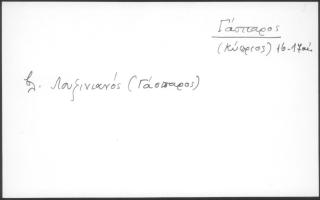 Γάσπαρος
(Κύπριος) 16-17 αι.
βλ. Λουζινιανός (Γάσπαρος)